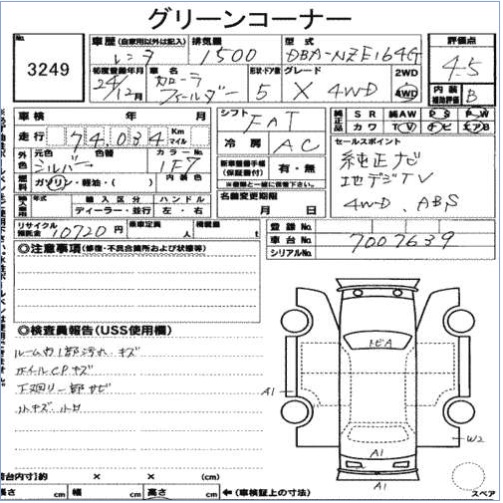 グリーンコーナー
No.
3249
車歴 (自家用以外は記入) 排気量 型式
レンタ 1500 DBA-NZE164G
評価点
4.5
初度登録年月 車名 形状・ドア数 グレード
24/12月 カローラ フィールダー 5 X 4WD
2WD
4WD
内装補助評価 B
車検 年 月
シフト
FAT
純正品 SR 純AW PS PW
革 カワ TV ナビ エアB
走行 74,034 Km マイル
冷房 AC
セールスポイント
純正ナビ
地デジTV
4WD、ABS
外色 元色 色替 カラーNo.
シルバー 1F7
新車整備手帳(保証書付) 有・無
燃料 ガソリン・軽油・( ) 内装色
年式 輸入区分 ハンドル
ディーラー・並行 左・右
名義変更期限
月 日
リサイクル預託金 10720 円 乗車定員 人 積載量 t
登録No.
車台No. 7007639
シリアルNo.
◎注意事項 (修復・不具合箇所および状態等)
◎検査員報告 (USS使用欄)
ルーム内1部汚れ、キズ
ホイルCPキズ
下廻り一部サビ
小キズ、小凹
A1
A1
W2
A1
荷台内寸)約 × ×
高さ cm 幅 cm 高さ cm ←(車検証上の寸法)
スペア